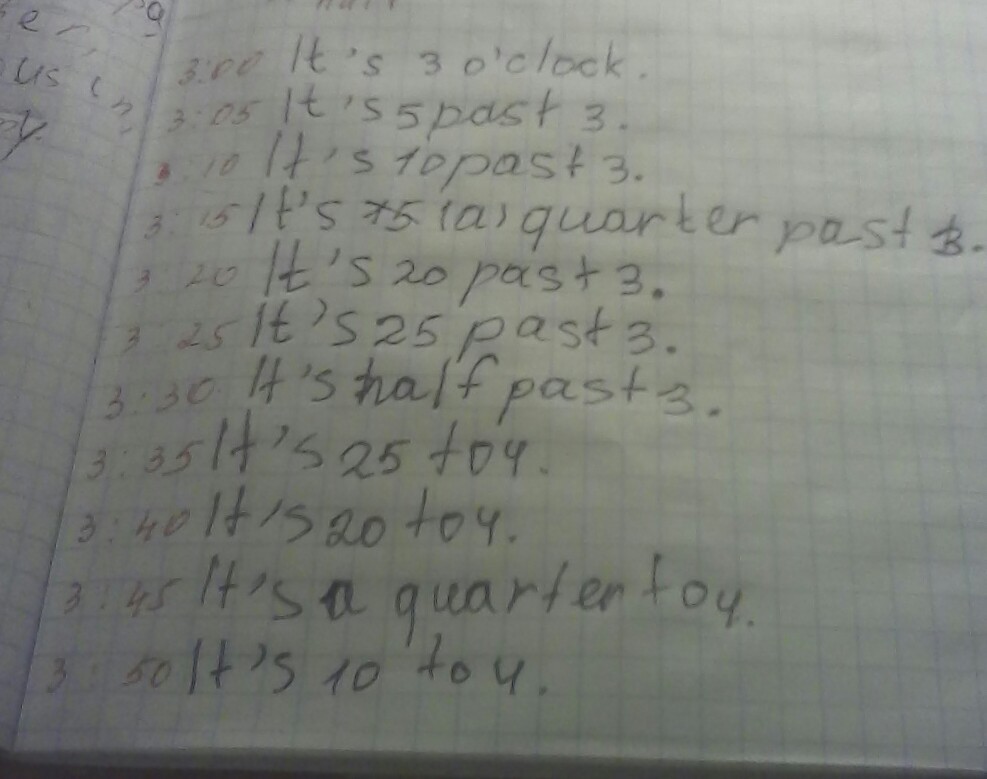 3:00 It's 3 o'clock.
3:05 It's 5 past 3.
3:10 It's 10 past 3.
3:15 It's 15 (a) quarter past 3.
3:20 It's 20 past 3.
3:25 It's 25 past 3.
3:30 It's half past 3.
3:35 It's 25 to 4.
3:40 It's 20 to 4.
3:45 It's a quarter to 4.
3:50 It's 10 to 4.